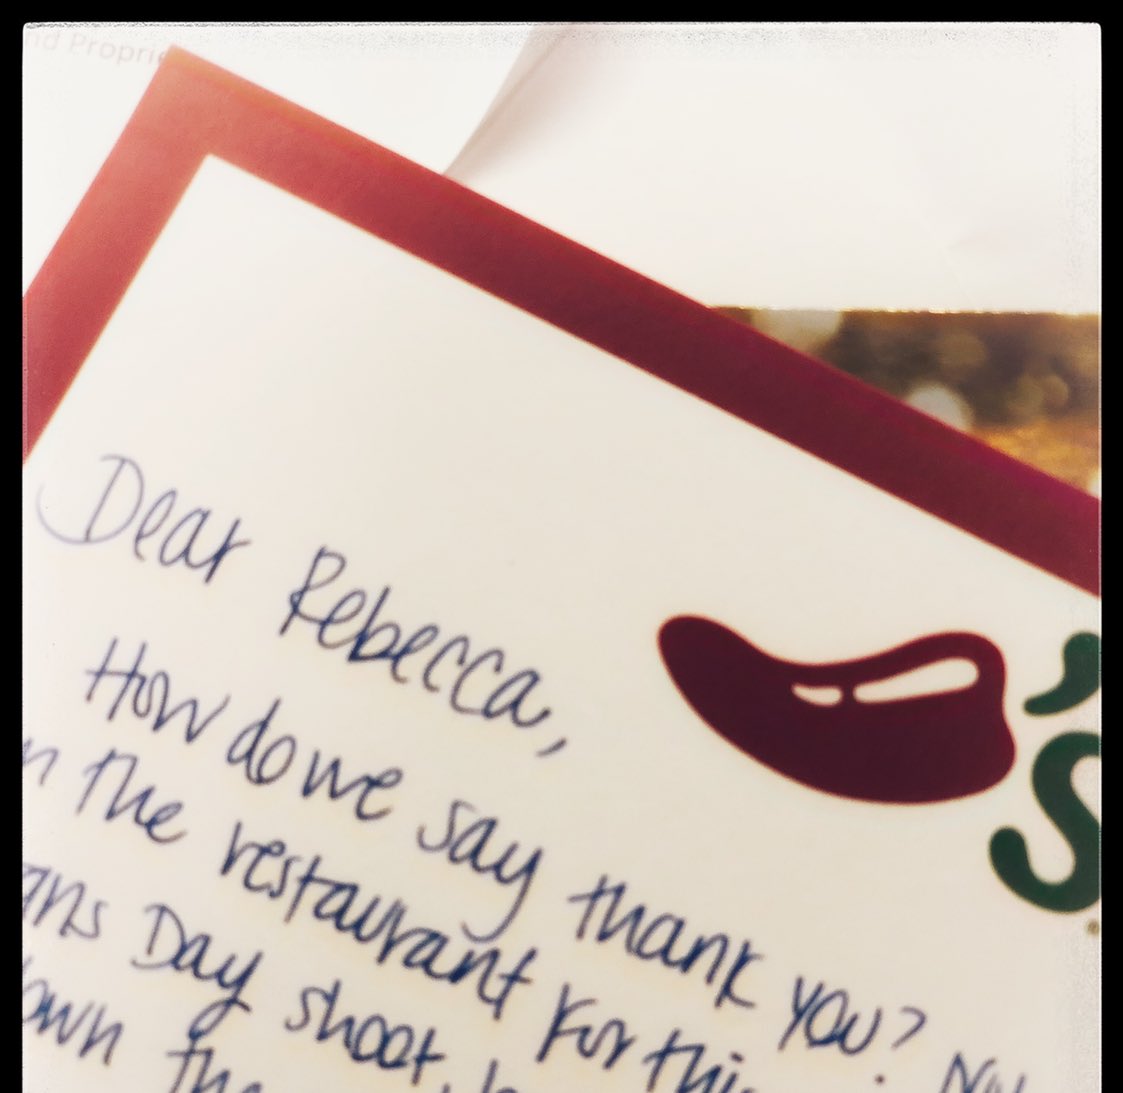 nd Proprie
Dear Rebecca,
How do we say thank you?
n the restaurant for this
ans Day shoot,
own the
's